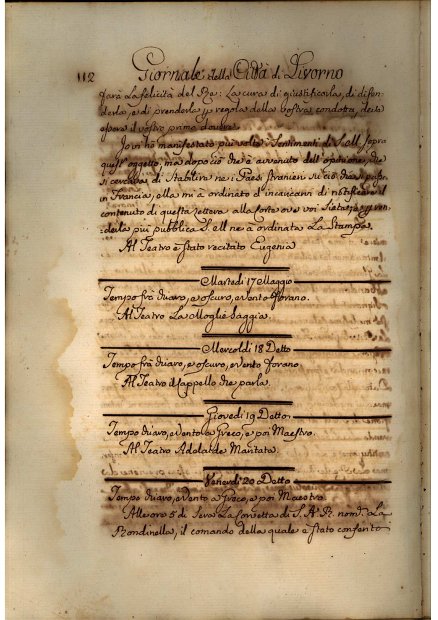 112 Giornale della Città di Livorno
farà La felicità del Re: La cura di giustificarla, di difen-
derla, e di prenderla p regola della vostra condotta, deve
essere il vostro primo dovere.
Io vi hò manifestato più volte i Sentimenti di S. M. sopra
quest'oggetto, ma dopo ciò che è avvenuto dell'opinione, che
si cercava di Stabilire ne i Paesi stranieri su ciò che si passa
in Francia, ella mi à ordinato d'incaricarvi di notificare il
contenuto di questa Lettera alla Corte ove voi Siete, e p ren-
derla più pubblica S. M. ne à ordinata La Stampa.
Al Teatro è stato recitato Eugenia
Martedì 17 Maggio
Tempo frà chiaro, e oscuro, e Vento forano.
Al Teatro La Moglie Saggia.
Mercoldì 18 Detto
Tempo frà chiaro, e oscuro, e Vento forano
Al Teatro il Cappello che parla.
Giovedì 19 Detto
Tempo chiaro, e Vento a Greco, e poi Maestro.
Al Teatro Adelaide Maritata.
Venerdì 20 Detto
Tempo chiaro, e Vento a Greco, e poi Maestro
Alle ore 5 di Sera La Corvetta di S. A. R. nomᵗᵃ La
Rondinella, il comando della quale è stato conferito